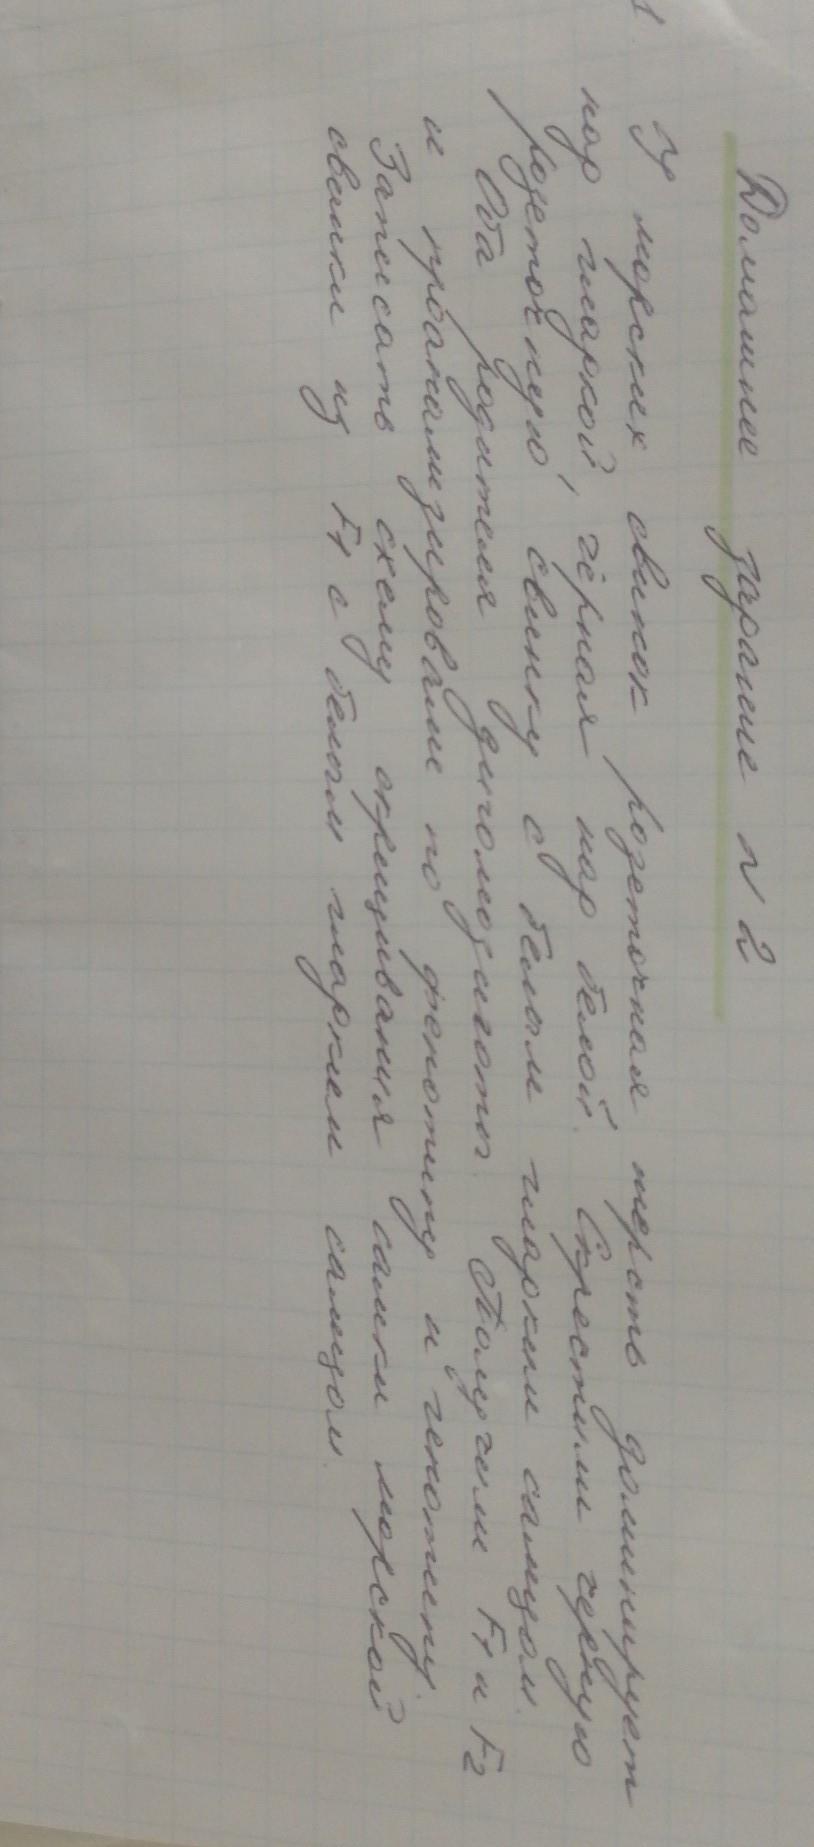 Домашнее задание N 2
1. У морских свинок розеточная шерсть доминирует
над гладкой, чёрная над белой. Скрестили черную
розеточную свинку с белым гладким самцом.
Оба родителя дигомозиготы. Получили F1 и F2
и проанализировали по фенотипу и генотипу.
Записать схему скрещивания самки морской
свинки из F1 с белым гладким самцом.